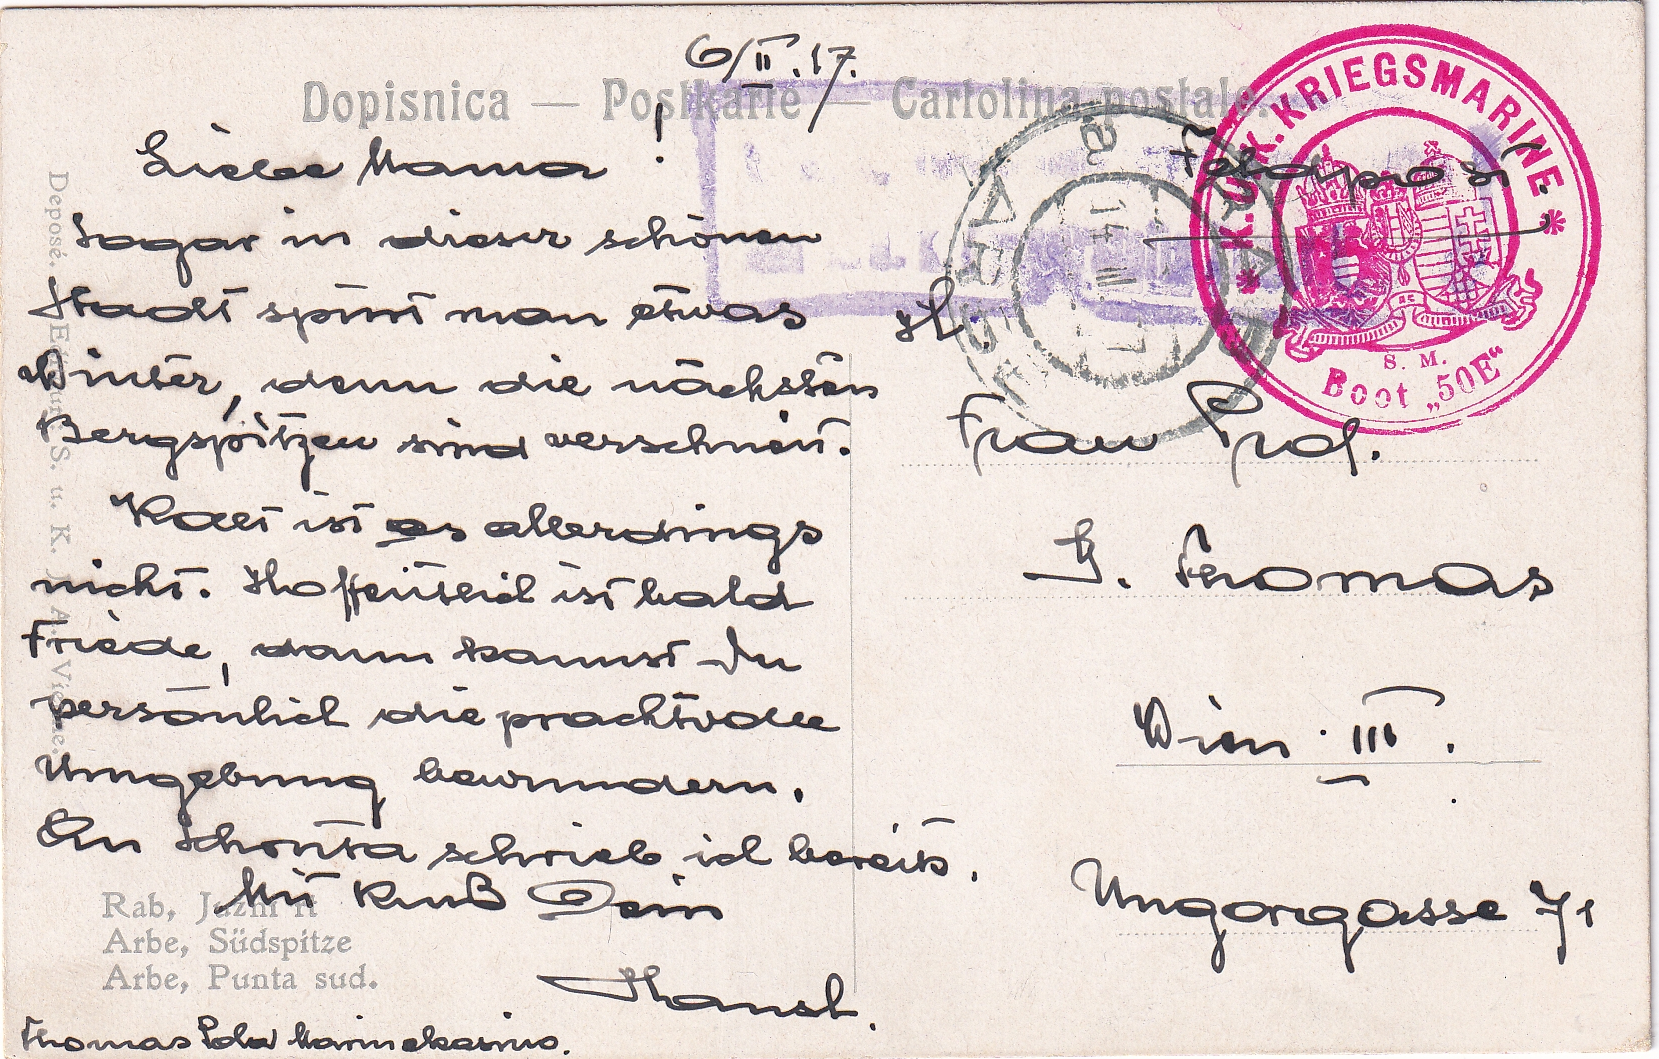 6/II.17.
Dopisnica — Postkarte — Cartolina postale.
Feldpost.
Liebe Mama!
Sogar in dieser schönen
Stadt spürt man etwas
Winter, denn die nächsten
Bergspitzen sind verschneit.
Kalt ist es allerdings
nicht. Hoffentlich ist bald
Friede, dann kannst Du
persönlich die prachtvolle
Umgebung bewundern.
An schrieb ich bereits.
Mit Kuß Dein
Hansl.
Thomas Pola Marinekasino.
Rab, Južni rt
Arbe, Südspitze
Arbe, Punta sud.
Deposé. S. u. K. A. Vienne.
K. U. K. KRIEGSMARINE
S. M.
Boot „50E“
14 III 17
Frau Prof.
G. Thomas
Wien III.
Ungargasse 71